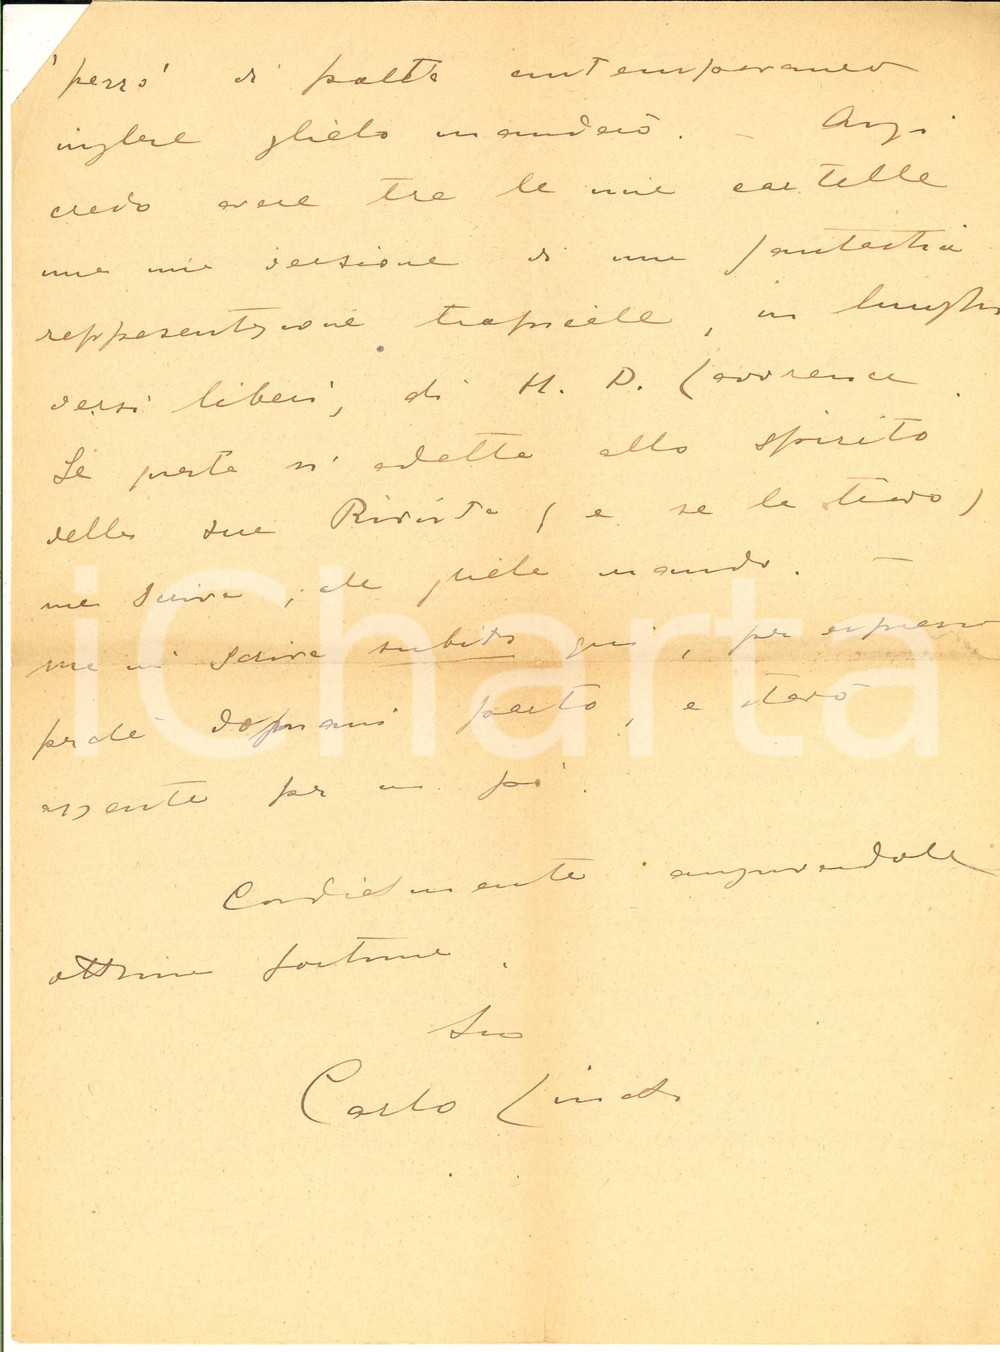 'pezzo' di poeta contemporaneo
inglese glielo manderò. – Anzi
credo avere tra le mie cartelle
una mia versione di una fantastica
rappresentazione tropicale, in lunghi
versi liberi, di H. D. Lawrence.
Se questa si adatta allo spirito
della sua Rivista (e se la trovo)
me scriva, che gliela mando. –
Ma mi scriva subito qui, per espresso
perchè dopmani parto, e starò
assente per un po'.
Cordialmente augurandole
ottima fortuna.
Suo
Carlo Linati
iCharta